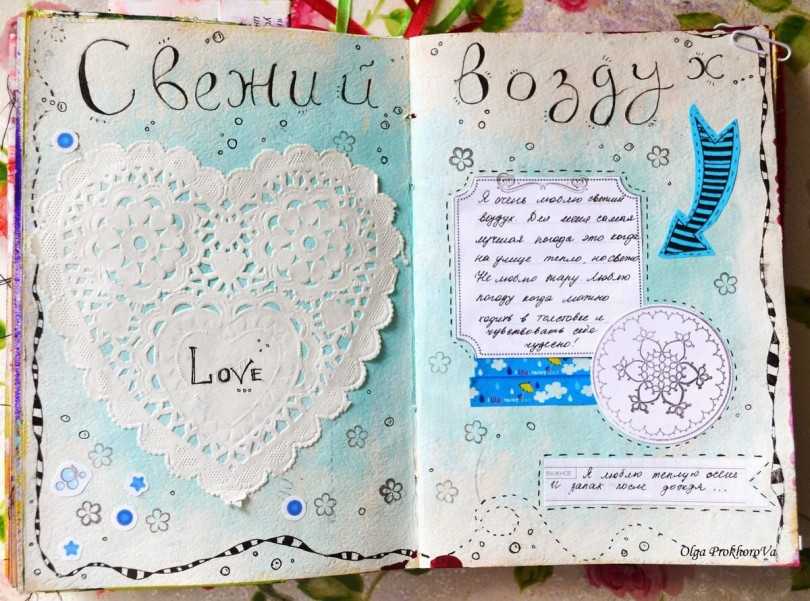 Свежий воздух
Love
Я очень люблю свежий
воздух. Для меня самая
лучшая погода это когда
на улице тепло, но свежо.
Не люблю жару. Люблю
погоду когда можно
ходить в толстовке и
чувствовать себя
чудесно!
ВАЖНОЕ
Я люблю теплую осень
и запах после дождя...
Olga ProkhoroVa